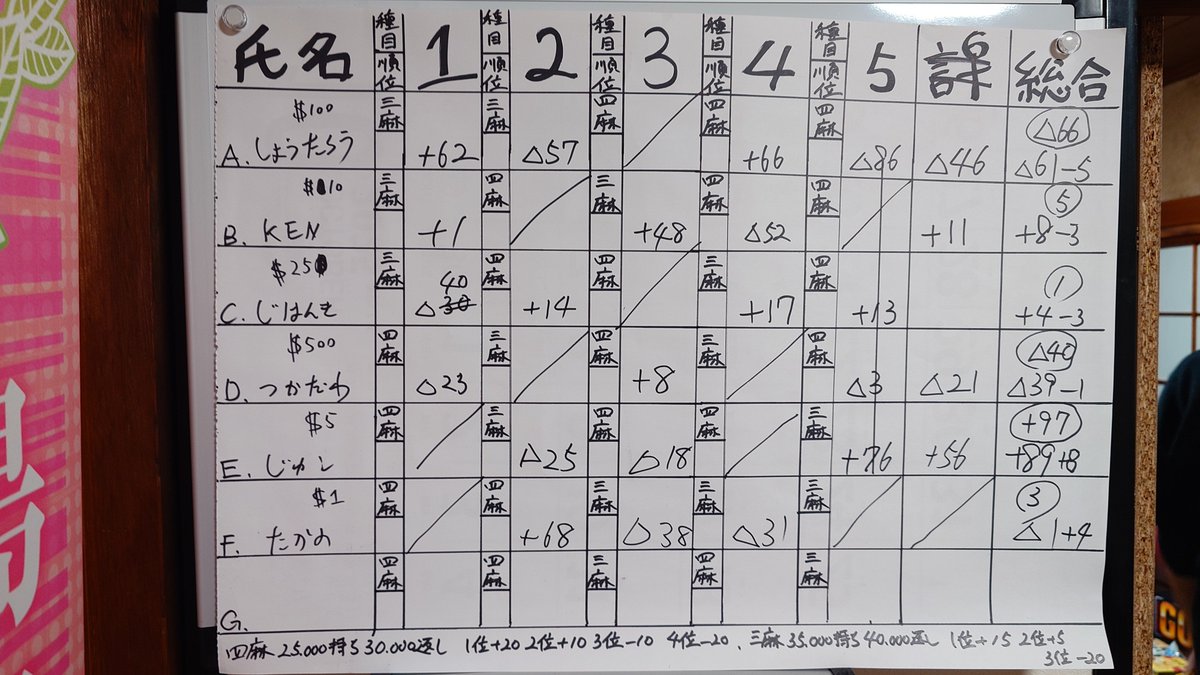 氏名 種目 順位 1 種目 順位 2 種目 順位 3 種目 順位 4 種目 順位 5 課 総合
$100 三麻 三麻 四麻 四麻 四麻 △66
A. しょうたろう +62 △57 +66 △86 △46 △61-5
$10 三麻 四麻 三麻 四麻 四麻 5
B. KEN +1 +48 △52 +11 +8-3
$25 三麻 40 四麻 四麻 三麻 四麻 1
C. じはんき △ +14 +17 +13 +4-3
$500 四麻 三麻 四麻 三麻 四麻 △40
D. つかだわ △23 +8 △3 △21 △39-1
$5 四麻 三麻 四麻 四麻 三麻 +97
E. △25 △18 +76 +56 +89+8
$1 四麻 四麻 三麻 三麻 三麻 3
F. たかの +68 △38 △31 △1+4
四麻 四麻 三麻 四麻 三麻
G.
四麻 25.000持ち30.000返し 1位+20 2位+10 3位-10 4位-20、三麻 35.000持ち40.000返し 1位+15 2位+5
3位-20